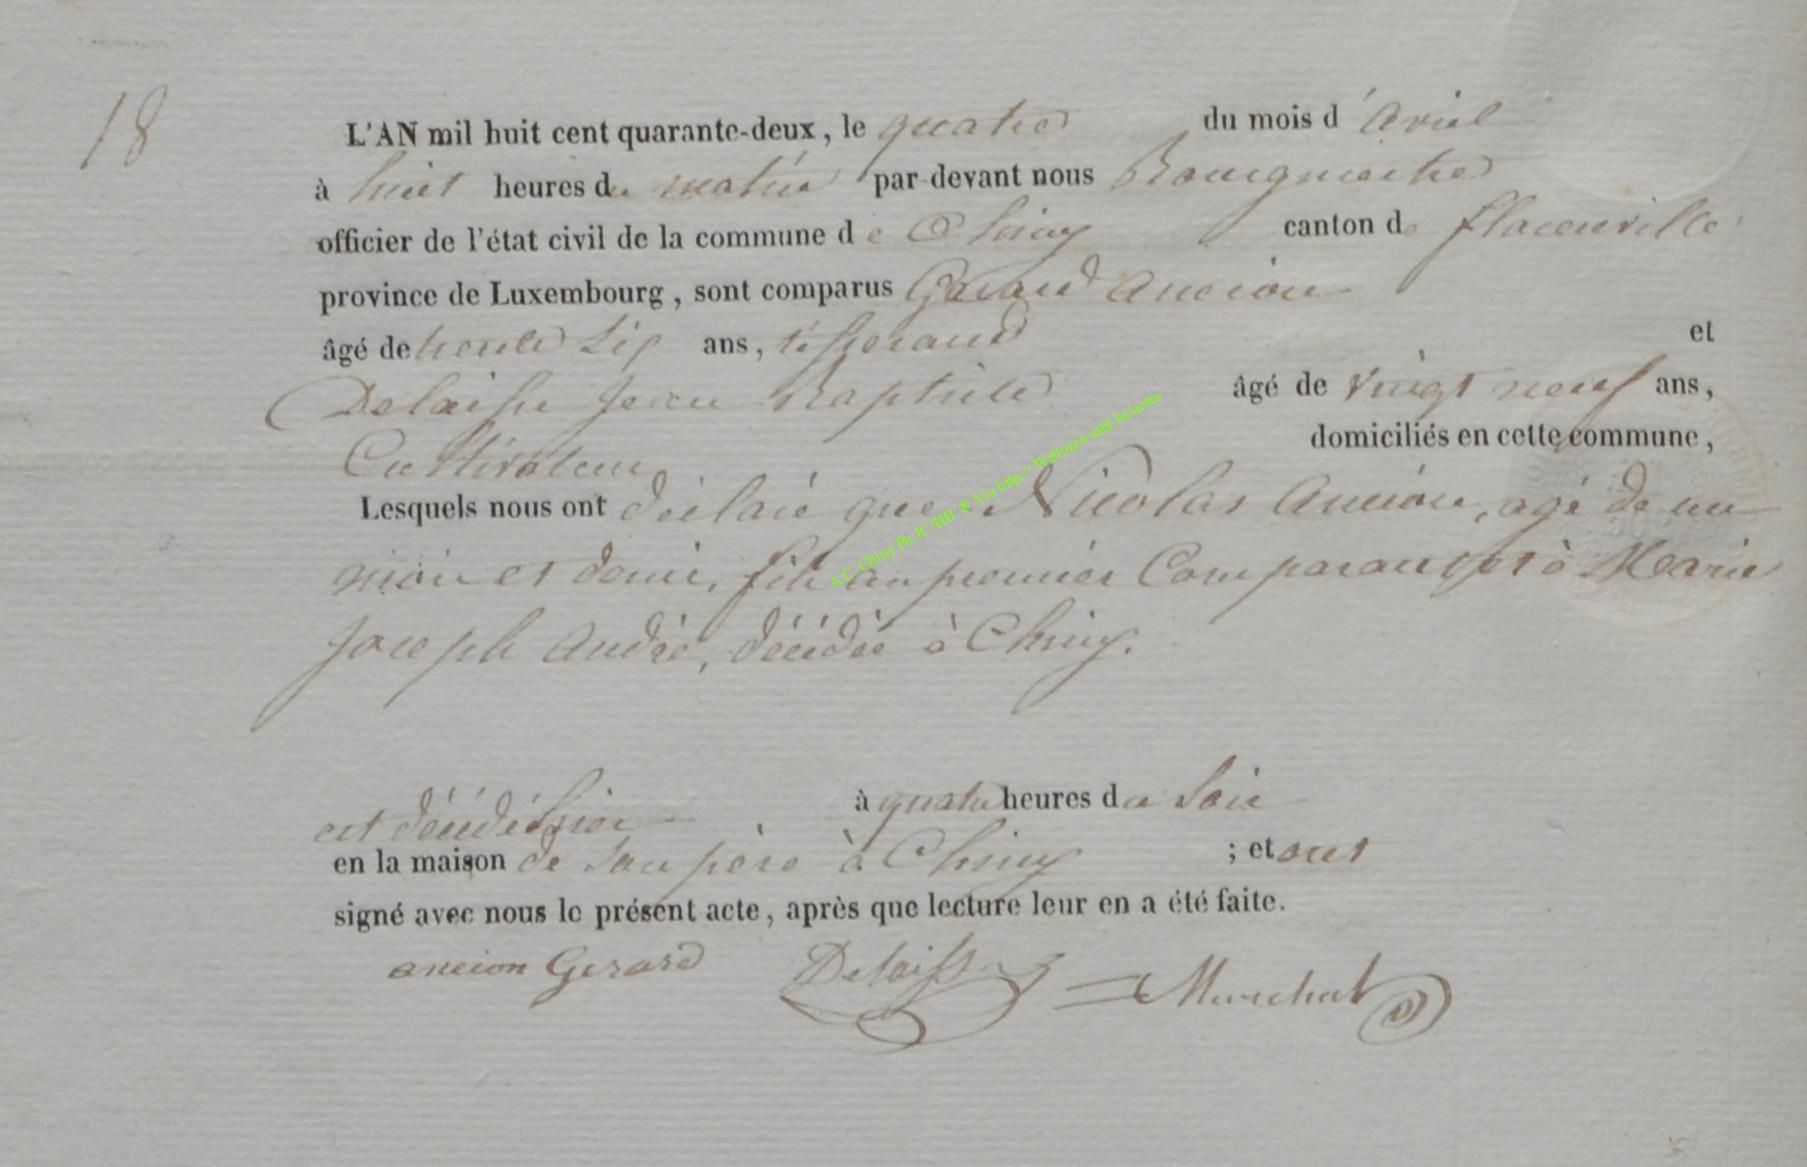 18
L'AN mil huit cent quarante-deux, le quatre du mois d'Avril
à huit heures du matin par-devant nous Bourgmestre
officier de l'état civil de la commune de Chiny canton de florenville
province de Luxembourg, sont comparus Gérard Ancion
âgé de trente six ans, tisserand et
Delaisse Jean Baptiste âgé de vingt neuf ans,
Cultivateur domiciliés en cette commune,
Lesquels nous ont déclaré que Nicolas Ancion, agé de un
mois et demi, fils du premier Comparant et à Marie
Joseph André, décédée à Chiny.
est décédé hier à quatre heures du soir
en la maison de son père à Chiny ; et ont
signé avec nous le présent acte, après que lecture leur en a été faite.
ancion Gerard Delaisse Marechal
A.C. Chiny Ph JC HD & Via http:// Wallonia-asbl.be/actes